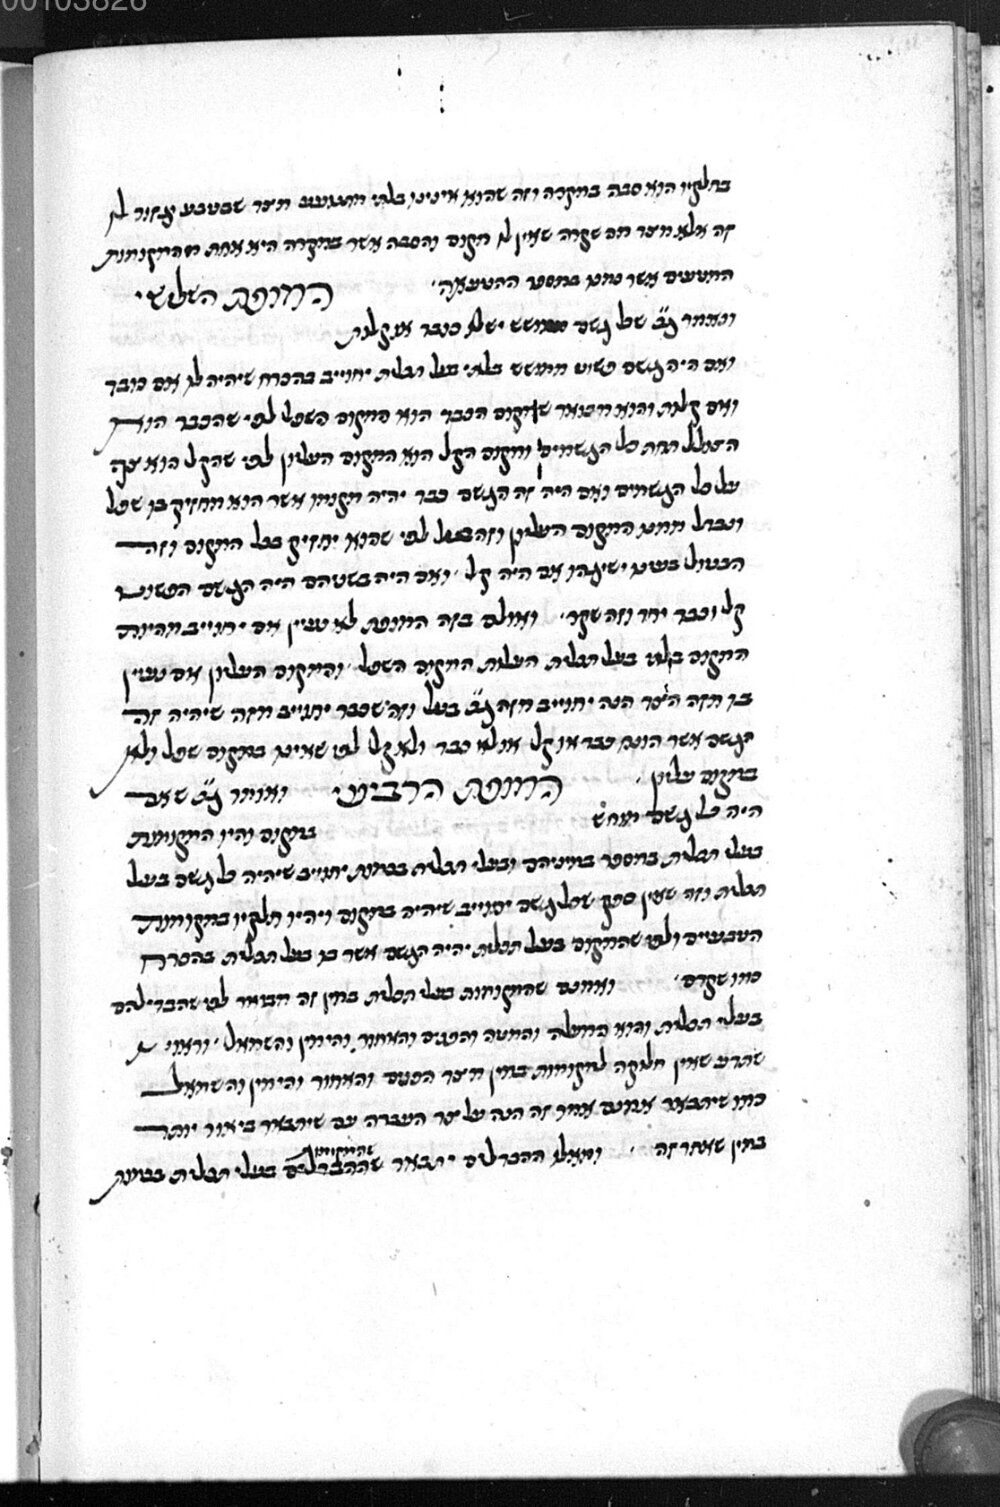 00103826
בחלקיו הוא סבה במקרה וזה שהוא אינינו בלתי מתנועע מצד שבטבע
זה אלא מצד מה שקרה שאין לו מקום והסבה אשר במקרה היא אחת מהמקומות
המטעים אשר נמנו בספר ההטעאה׳
המופת השלישי
ונאמר ג״כ שכל גשם ממושש יש לו כובד או קלות
ואם היה גשם פשוט ממושש בלתי בעל תכלית יחוייב בהכרח שיהיה לו אם כובד
ואם קלות והוא מבואר שמקום הכבד הוא המקום השפל לפי שהכבד הוא
הצולל תחת כל הגשמים ומקום הקל הוא המקום העליון לפי שהקל הוא צף
על כל הגשמים ואם היה זה הגשם כבד יהיה מקומו אשר הוא מחזיק בו שפל
ונבדל ממנו המקום העליון וזה בטל לפי שהוא יחזיק בכל המקום וזה
הבטול בעינו ישיגהו אם היה קל ׳ ואם היה בשניהם היה הגשם הפשוט
קל וכבד יחד וזה שקר׳ ואולם בזה המופת לא נעיין אם יחוייב מהיות
המקום בלתי בעל תכלית העלות המקום השפל ׳ והמקום העליון אם נעיין
בו מזה הצד הנה יחוייב מזה ג״כ בטל וזה שכבר יחוייב מזה שיהיה זה
הגשם אשר הונח כבד או קל או לא כבד ולא קל לפי שאינו במקום שפל ולא
במקום עליון ׳
המופת הרביעי
ונאמר ג״כ שאם
היה כל גשם מוחש
במקום והיו המקומות
בעלי תכלית במספר במיניהם ובעלי תכלית בכמות יחוייב שיהיה כל גשם בעל
תכלית וזה שאין ספק שכל גשם יחוייב שיהיה במקום ויהיו חלקיו במקומות
הטבעיים ולפי שהמקום בעל תכלית יהיה הגשם אשר בו בעל תכלית בהכרח
כמו שקדם ׳ ואמנם שהמקומות בעלי תכלית במין זה מבואר לפי שהבדליהם
בעלי תכלית והוא המעלה והמטה והפנים והאחור והימין והשמאל ׳ וראוי
שתדע שאין חלוקה למקומות במין מצד הפנים והאחור והימין והשמאל
כמו שיתבאר אמנם אחר זה הנה על צד העברה עם שיתבאר ביאור יותר
במין שאחר זה ׳ ומאלו ההבדלים יתבאר שהמקומות בעלי תכלית בכמות